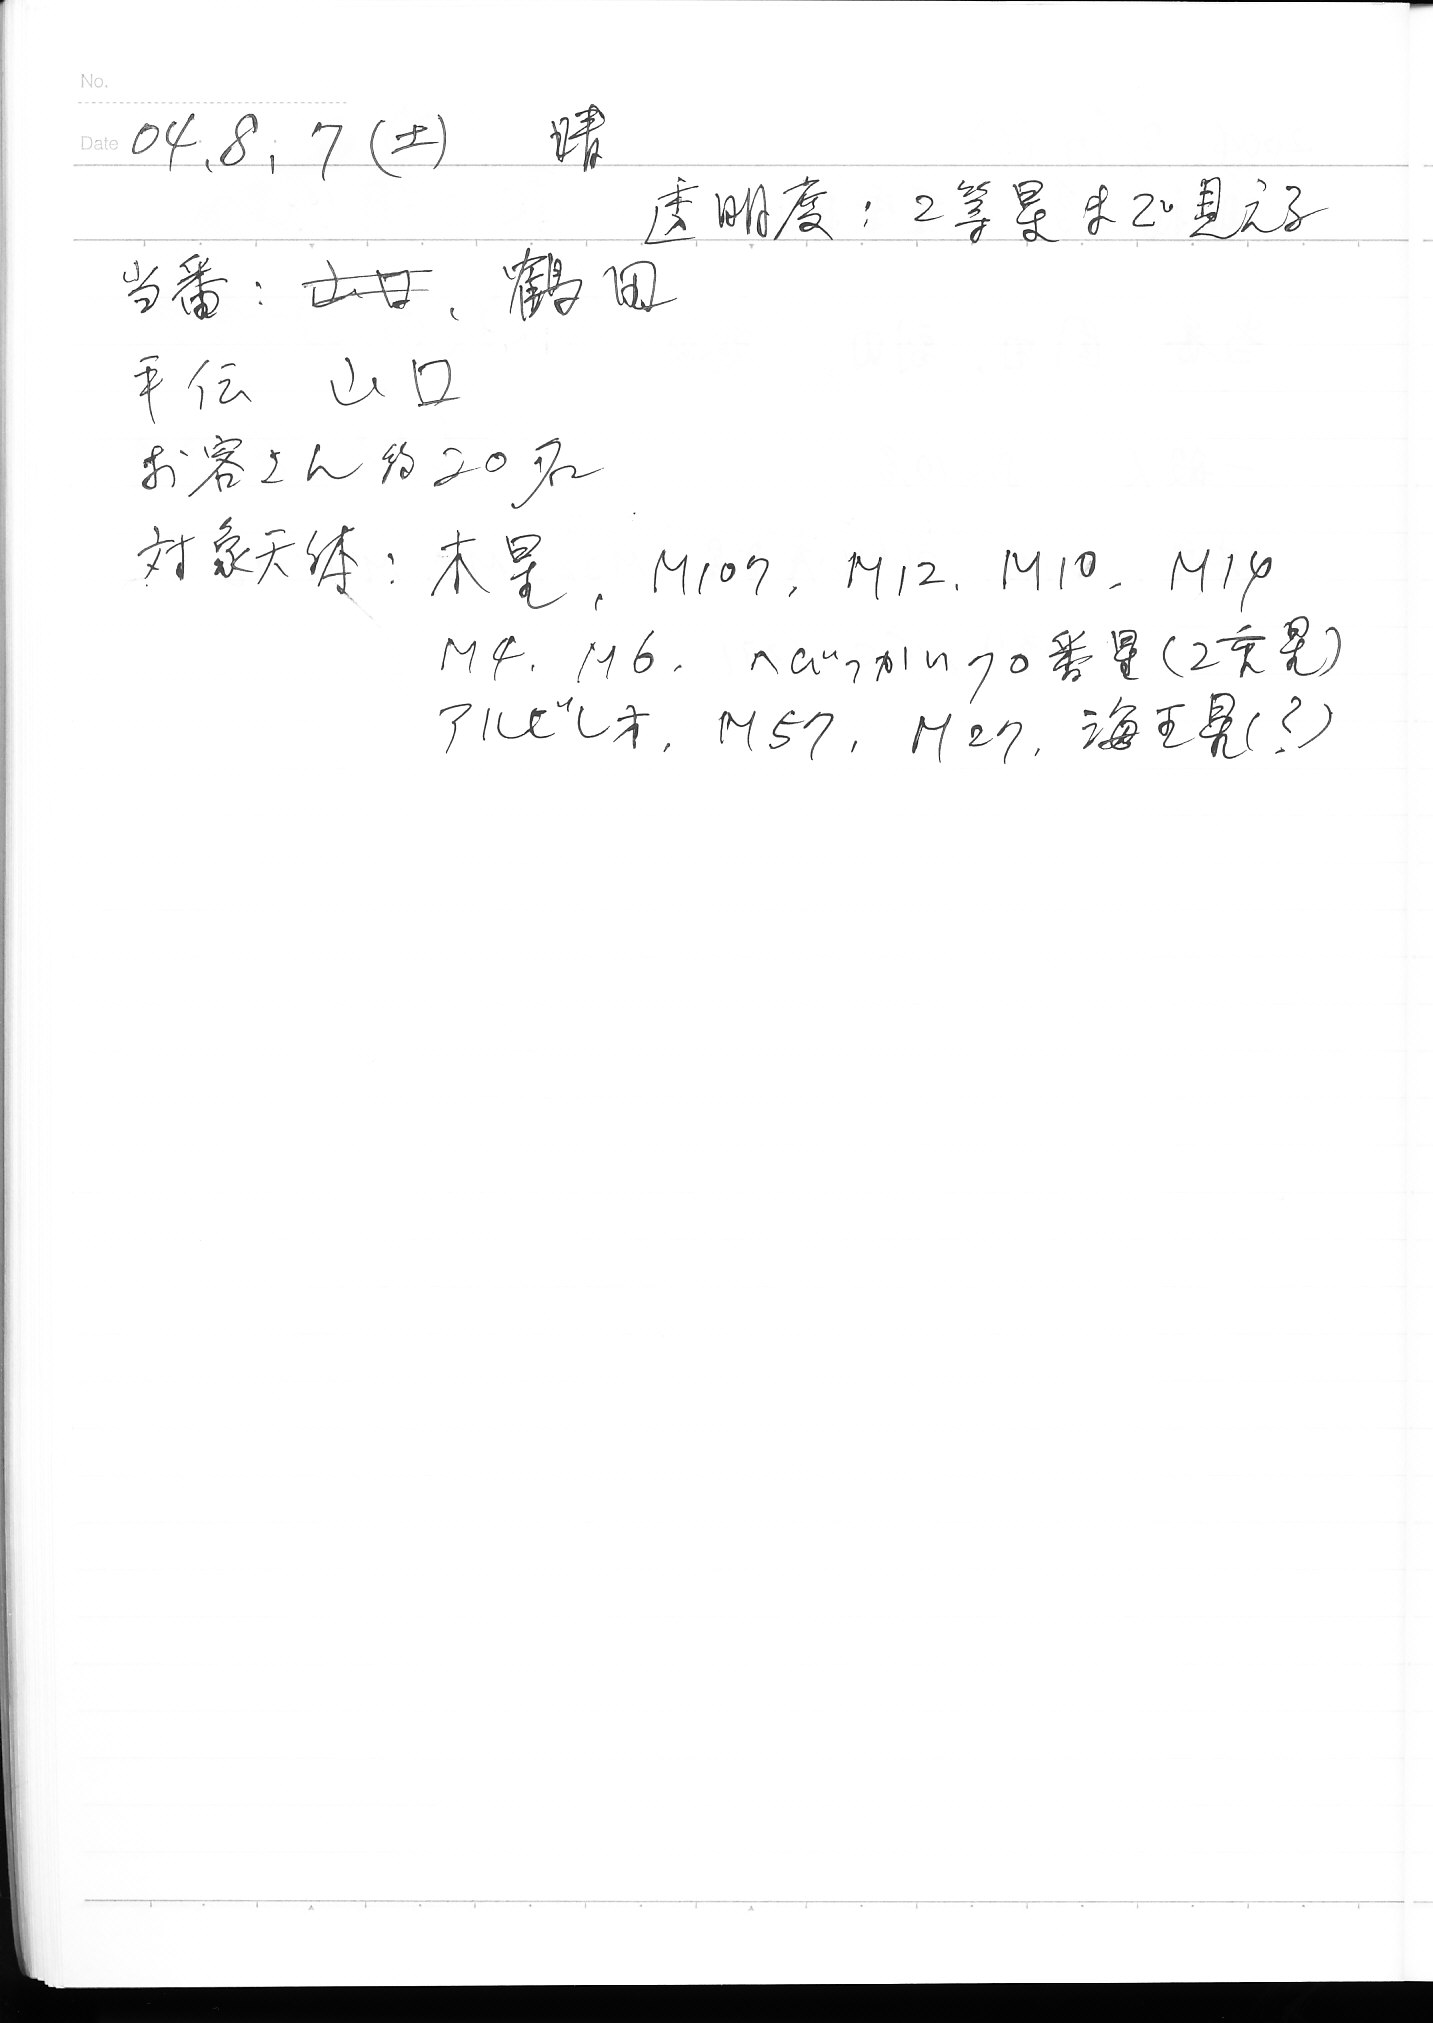 No.
Date 04.8.7(土) 晴
透明度:2等星まで見える
当番:山口、鶴田
手伝 山口
お客さん約20名
対象天体:木星、M107、M12、M10、M14
M4、M6、へびつかい70番星(2重星)
アルビレオ、M57、M27、海王星(?)